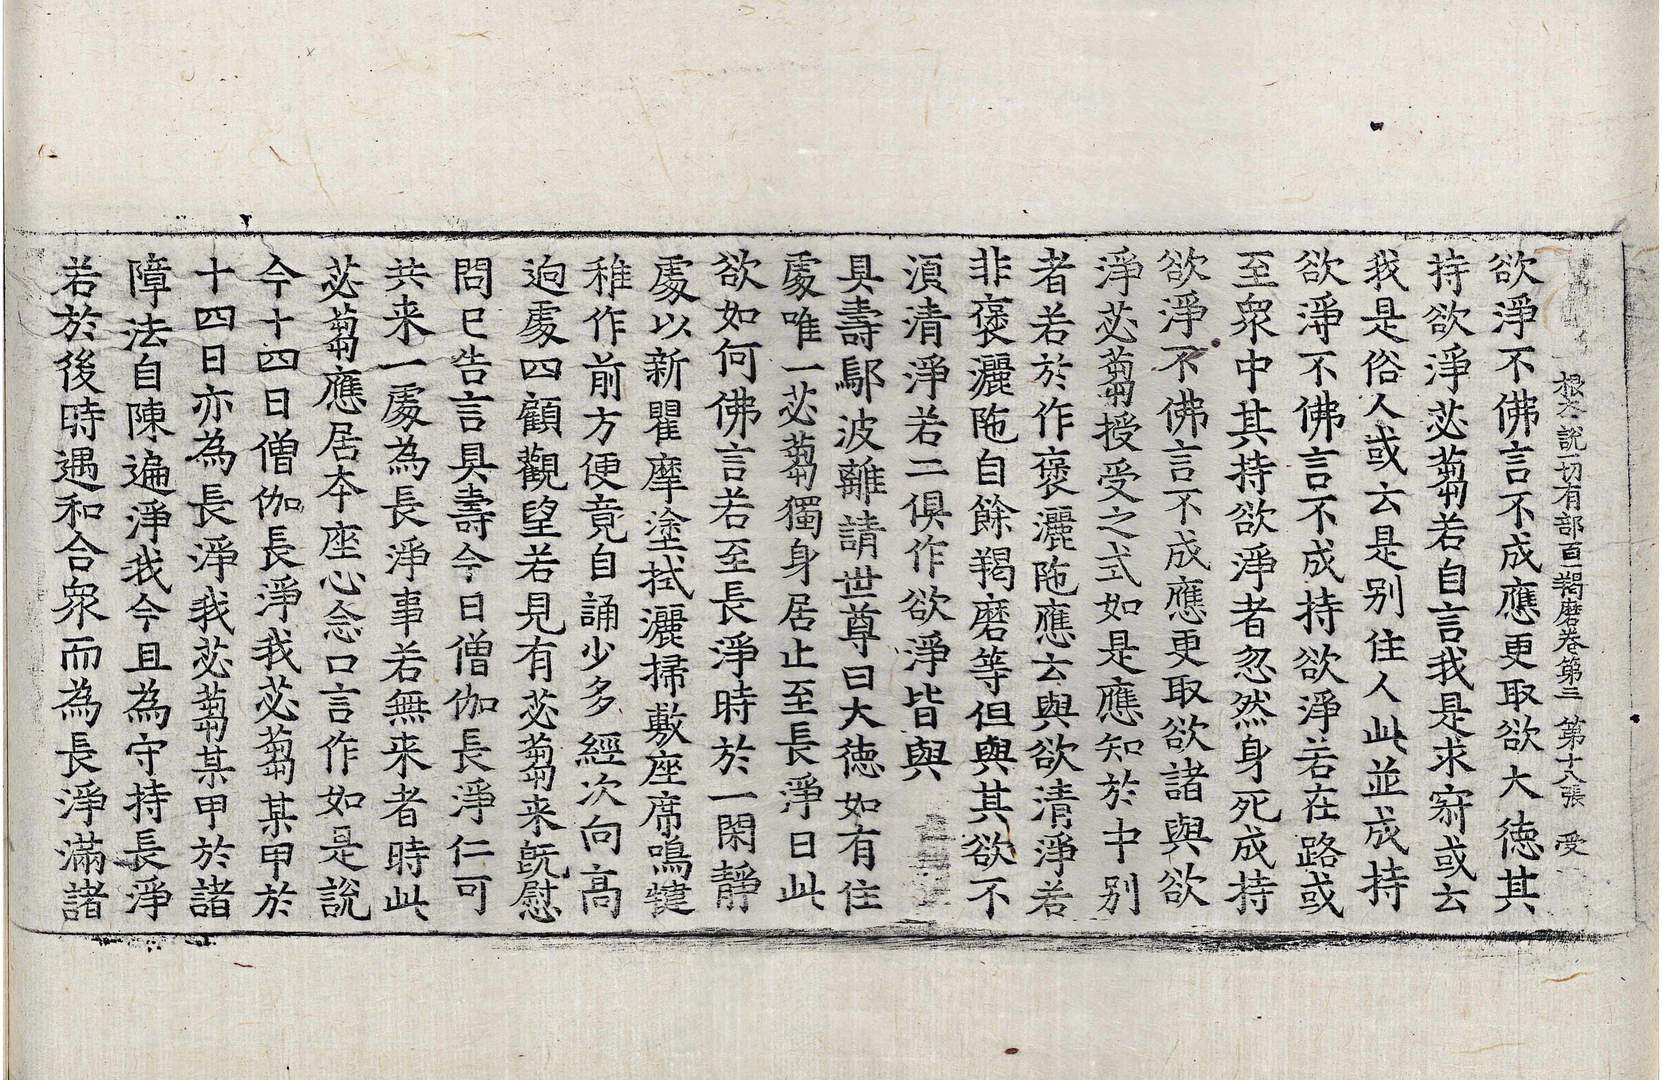 根本說一切有部百一羯磨卷第三 第十八張 受
欲淨不佛言不成應更取欲大德其
持欲淨苾蒭若自言我是求寂或云
我是俗人或云是别住人此並成持
欲淨不佛言不成持欲淨若在路或
至衆中其持欲淨者忽然身死成持
欲淨不佛言不成應更取欲諸與欲
淨苾蒭授受之式如是應知於中别
者若於作褒灑陁應云與欲清淨若
非褒灑陁自餘羯磨等但與其欲不
須清淨若二俱作欲淨皆與
具壽鄔波離請世尊曰大德如有住
處唯一苾蒭獨身居止至長淨日此
欲如何佛言若至長淨時於一閑靜
處以新瞿摩塗拭灑掃敷座席鳴犍
稚作前方便竟自誦少多經次向高
逈處四顧觀望若見有苾蒭来旣慰
問巳告言具壽今日僧伽長淨仁可
共来一處為長淨事若無来者時此
苾蒭應居本座心念口言作如是說
今十四日僧伽長淨我苾蒭某甲於
十四日亦為長淨我苾蒭某甲於諸
障法自陳遍淨我今且為守持長淨
若於後時遇和合衆而為長淨滿諸